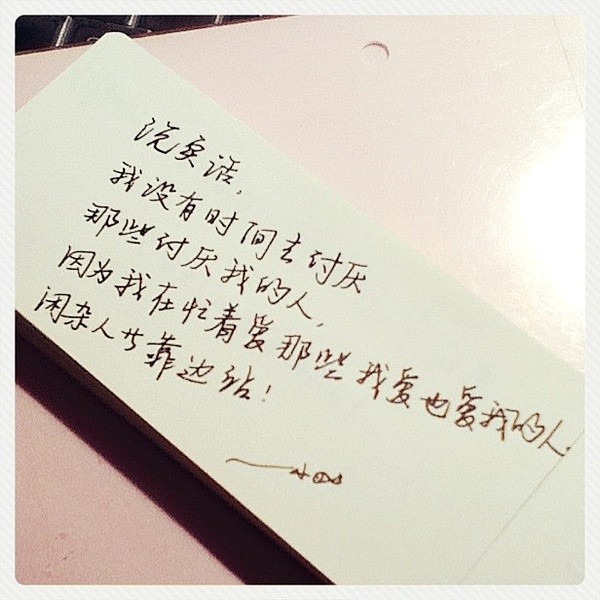 说实话,
我没有时间去讨厌
那些讨厌我的人,
因为我在忙着爱那些我爱也爱我的人.
闲杂人士靠边站!